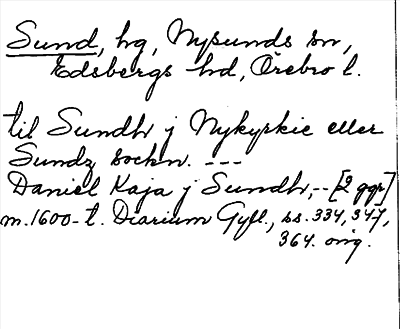 Sund, hg, Nysunds sn,
Edsbergs hd, Örebro l.
til Sundh j Nykyrkie eller
Sundz sockn. ---
Daniel Kaja j Sundh,-- [2 ggr]
m.1600-t. Diarium Gyll., ss. 334, 347,
364. orig.